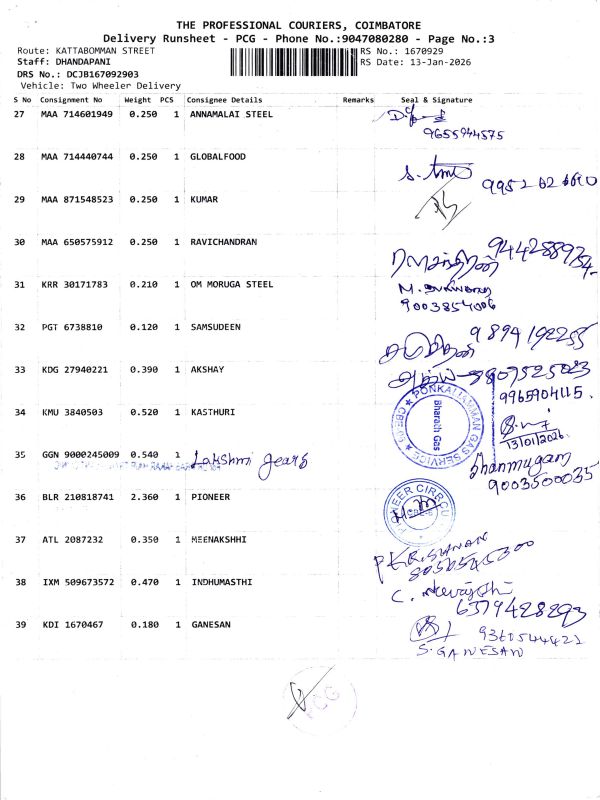 THE PROFESSIONAL COURIERS, COIMBATORE
Delivery Runsheet - PCG - Phone No.:9047080280 - Page No.:3
Route: KATTABOMMAN STREET
RS No.: 1670929
Staff: DHANDAPANI
RS Date: 13-Jan-2026
DRS No.: DCJB167092903
Vehicle: Two Wheeler Delivery
S No Consignment No Weight PCS Consignee Details Remarks Seal & Signature
27 MAA 714601949 0.250 1 ANNAMALAI STEEL
9655944575
28 MAA 714440744 0.250 1 GLOBALFOOD
29 MAA 871548523 0.250 1 KUMAR
30 MAA 650575912 0.250 1 RAVICHANDRAN
9442889734
31 KRR 30171783 0.210 1 OM MORUGA STEEL
9003854006
32 PGT 6738810 0.120 1 SAMSUDEEN
9894192255
33 KDG 27940221 0.390 1 AKSHAY
9965904115
34 KMU 3840503 0.520 1 KASTHURI
PONKATTAMMAN GAS SERVICE
Bharath Gas
13/01/2026
35 GGN 9000245009 0.540 1 Lakshmi Gears
Shanmugam
9003500035
36 BLR 210818741 2.360 1 PIONEER
37 ATL 2087232 0.350 1 MEENAKSHHI
38 IXM 509673572 0.470 1 INDHUMASTHI
6379428293
39 KDI 1670467 0.180 1 GANESAN
9360544421
S. GANESAN
PCG